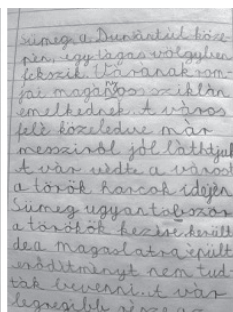 Sümeg a Dunántúl köze-
pén, egy tágas völgyben
fekszik. Várának rom-
jai magányos sziklán
emelkednek. A város
felé közeledve már
messziről jól láthtjuk
A vár védte a várost
a török harcok idején
Sümeg ugyantöbször
a törökök kezére került
de a magaslatra épült
erődítményt nem tud-
ták bevenni. A vár
legrégibb része az